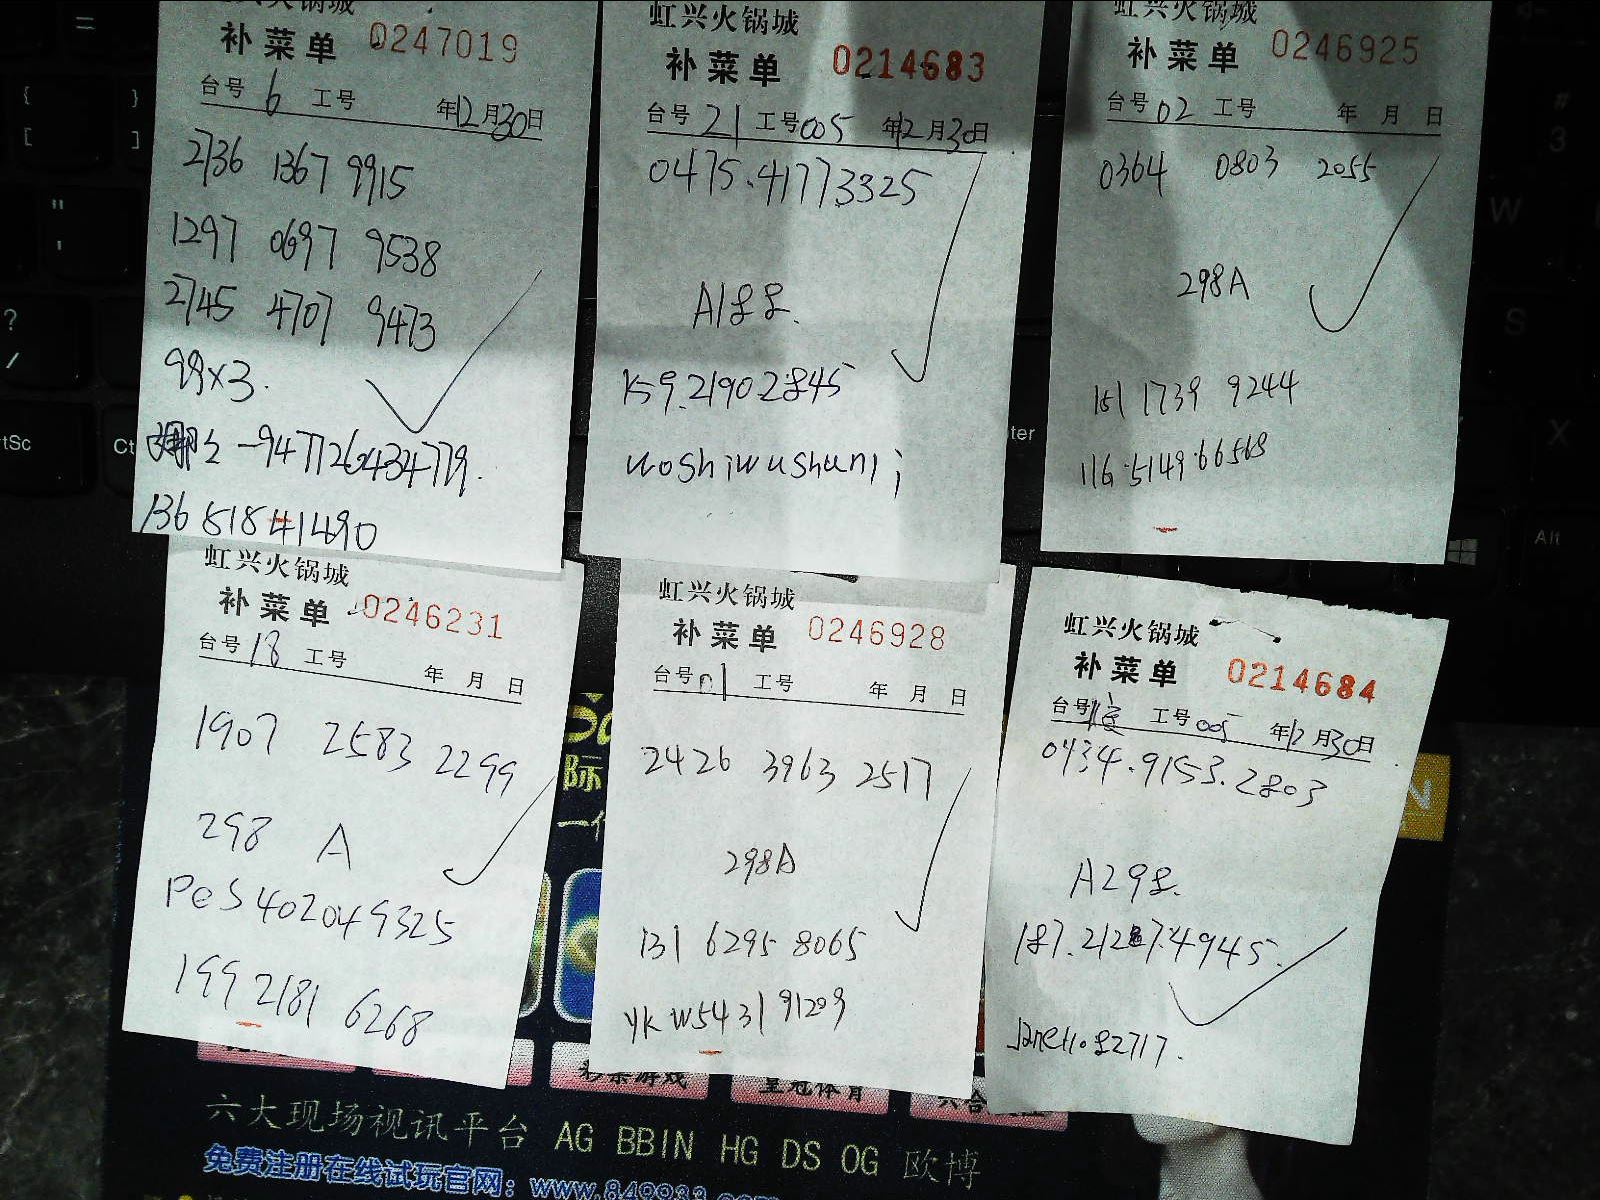 虹兴火锅城
补菜单 0247019
台号 6 工号 年12月30日
2736 1367 9915
1297 0697 9538
2745 4707 9473
99x3.
-9477126434779.
136 518 41490
虹兴火锅城
补菜单 0214683
台号 21 工号 005 年12月30日
0475.41773325
A188.
159.2190.2845
woshiwushuni;
虹兴火锅城
补菜单 0246925
台号 02 工号 年 月 日
0364 0803 2055
298A
151 1739 9244
116.5149.66568
虹兴火锅城
补菜单 0246231
台号 18 工号 年 月 日
1907 2583 2299
298 A
Pes402049325
199 2181 6268
虹兴火锅城
补菜单 0246928
台号 01 工号 年 月 日
2426 3963 2517
298A
131 6295 8065
ykw543191209
虹兴火锅城
补菜单 0214684
台号 工号 005 年12月30日
0434.9153.2803
A298.
187.21287.4945.
82717.
六大现场视讯平台 AG BBIN HG DS OG 欧博
免费注册在线试玩官网：www.849933.com